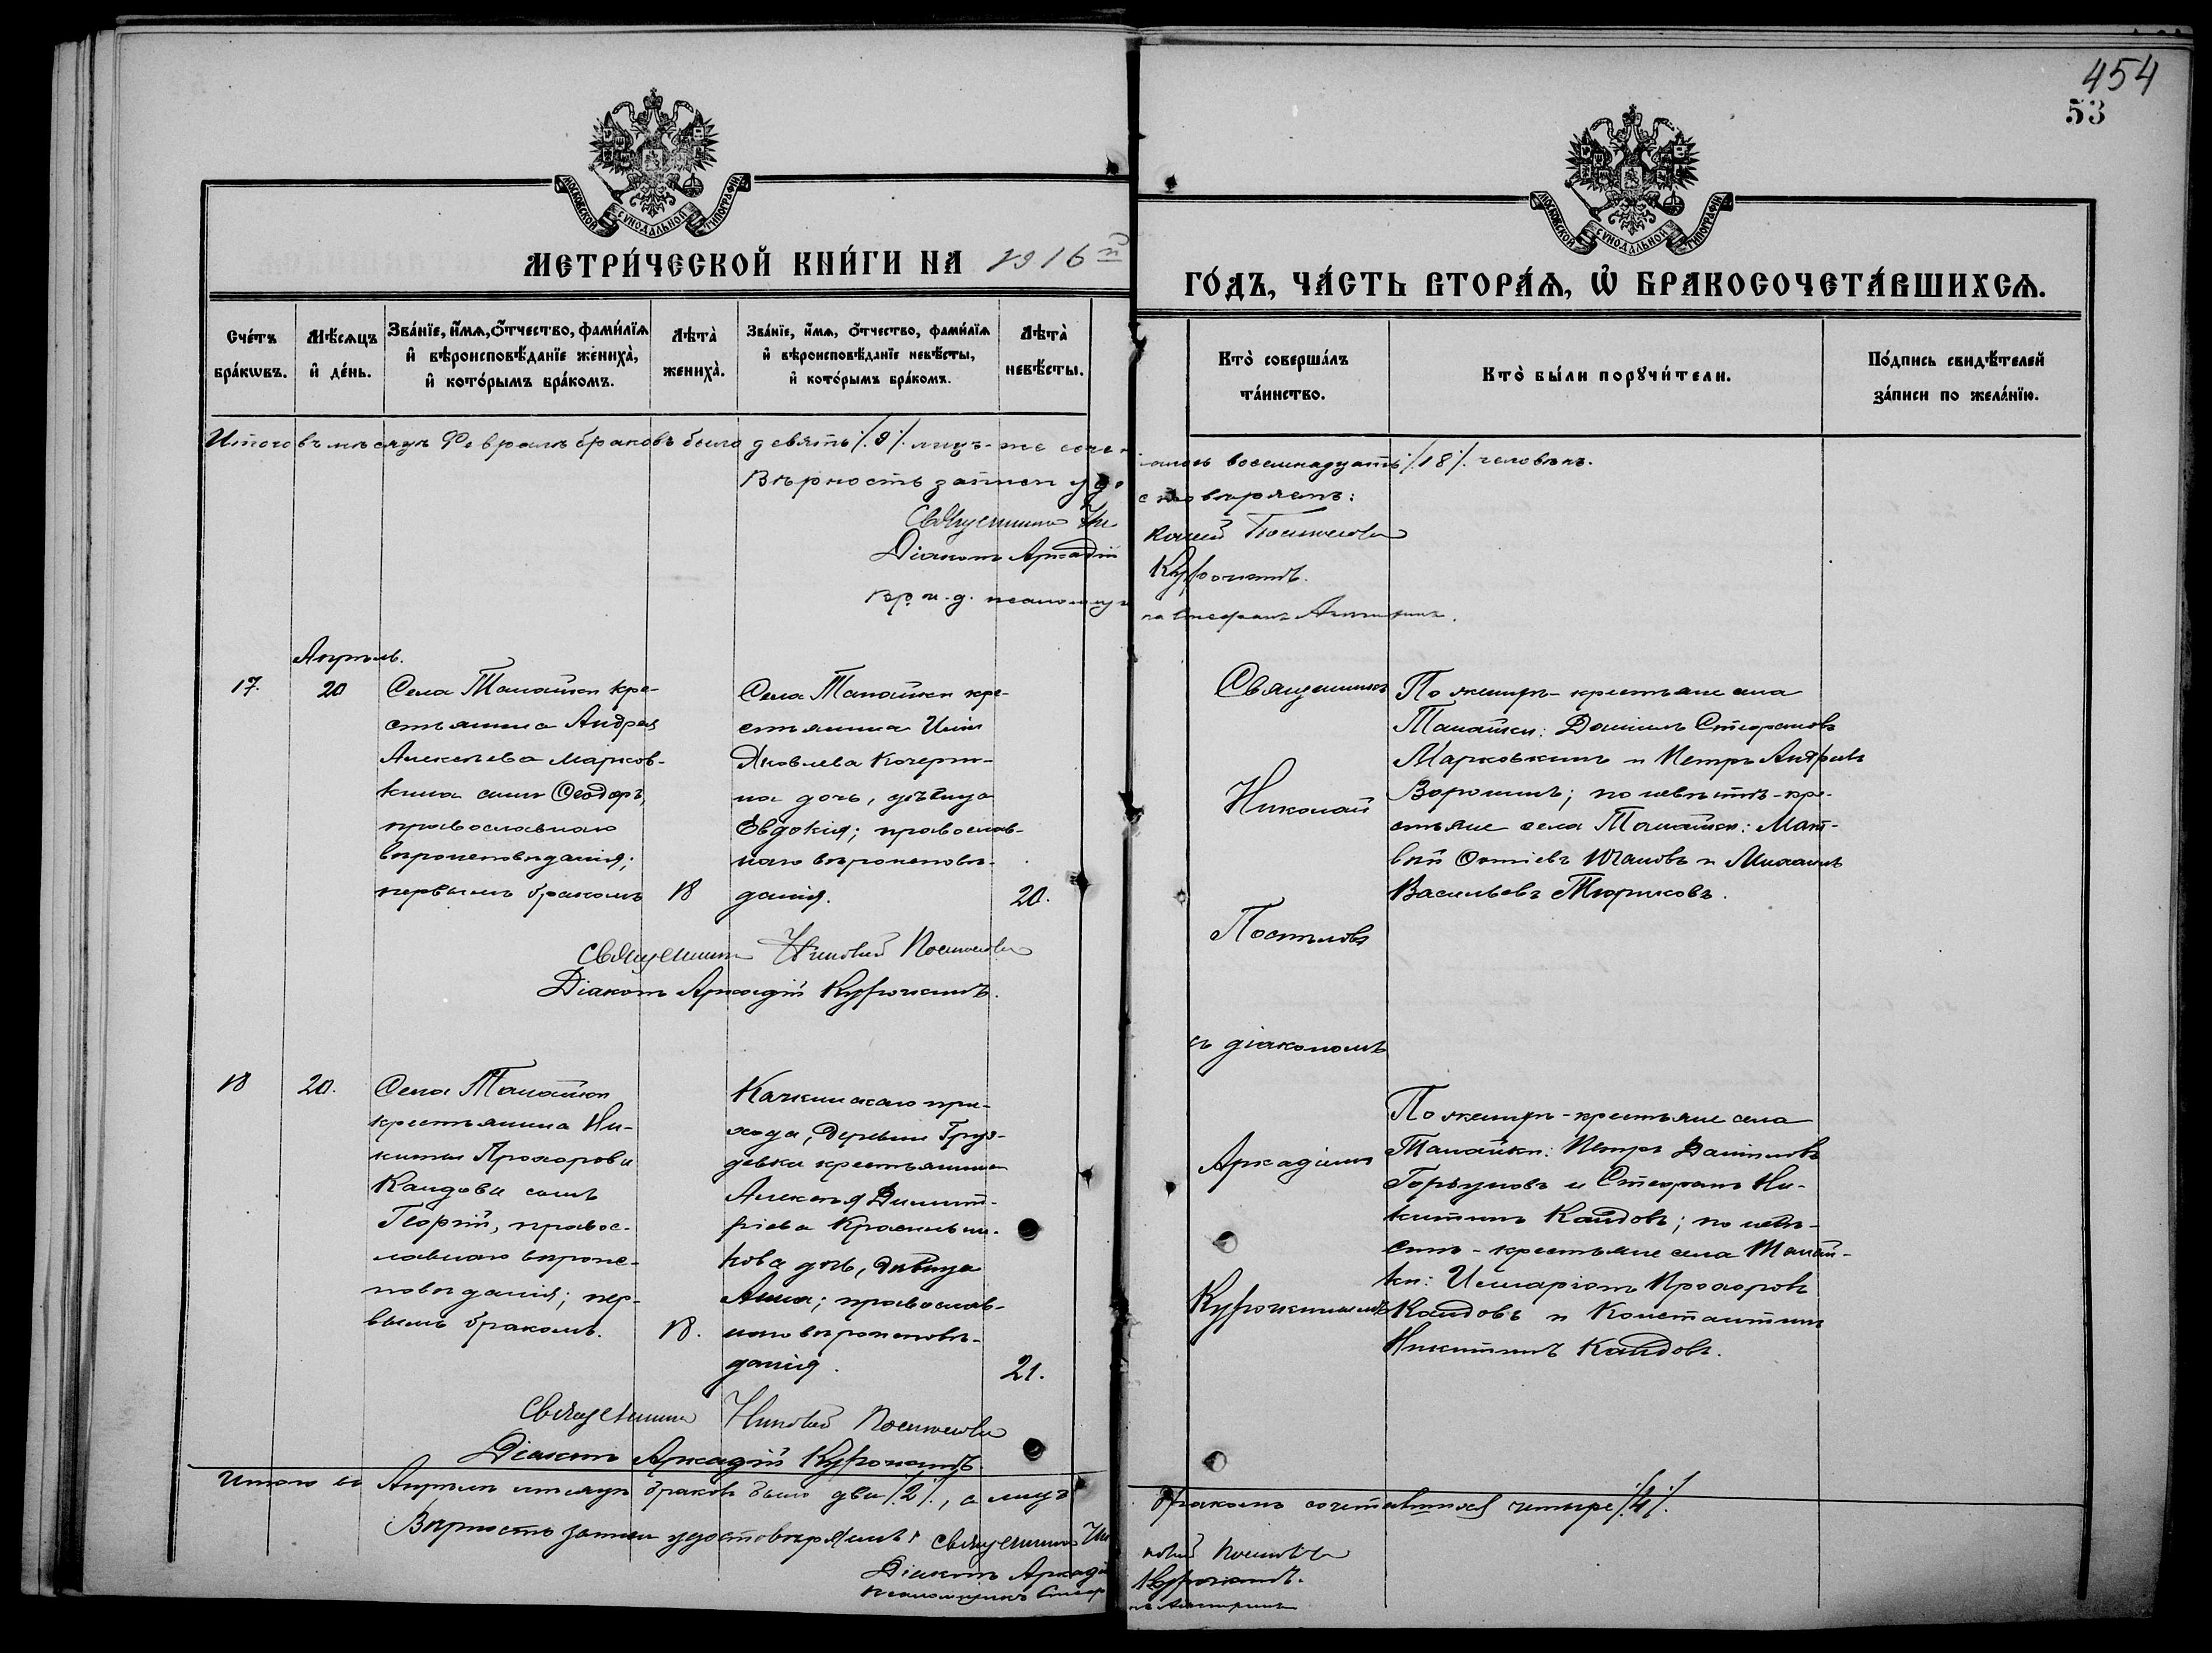 454
53
МОСКОВСКОЙ СѴНОДАЛЬНОЙ ТИПОГРАФІИ
МЕТРИ́ЧЕСКОЙ КНИ́ГИ НА 1916 й
МОСКОВСКОЙ СѴНОДАЛЬНОЙ ТИПОГРАФІИ
ГО́ДЪ, ЧА́СТЬ ВТОРА́Ѧ, Ѽ БРАКОСОЧЕТА́ВШИХСѦ.
Сче́тъ бра́кѡвъ.
Мѣ́сѧцъ и҆ де́нь.
Зва́нїе, и҆́мѧ, ѻ҆́тчество, фами́лїѧ
и҆ вѣроисповѣ́данїе жениха̀,
и҆ кото́рымъ бра́комъ.
Лѣта̀ жениха̀.
Зва́нїе, и҆́мѧ, ѻ҆́тчество, фами́лїѧ
и҆ вѣроисповѣ́данїе невѣ́сты,
и҆ кото́рымъ бра́комъ.
Лѣта̀ невѣ́сты.
Кто̀ соверша́лъ та́инство.
Кто̀ бы́ли порꙋчи́тели.
По́дпись свидѣ́телей за́писи по жела́нїю.
Итого въ мѣсяцѣ Февралѣ браковъ было девять /9/. лицъ-же соче-
талось восемнадцать /18/. человѣкъ.
Вѣрность записи удо-
стовѣряемъ:
Священникъ Ни
колай Поспѣловъ
Діаконъ Аркадій
Курочкинъ.
Вр. и. д. псаломщи
ка Стефанъ
Апрѣль.
17.
20
Села Танайки кре-
стьянина Андрея
Алексѣева Марков-
кина сынъ Ѳеодоръ,
православнаго
вѣроисповѣданія;
первымъ бракомъ
18
Села Танайки кре-
стьянина Иліи
Яковлева Кочерги-
на дочь, дѣвица
Евдокія; православ-
наго вѣроисповѣ-
данія.
20.
Священникъ Николай Поспѣловъ
Діаконъ Аркадій Курочкинъ.
Священникъ
Николай
Поспѣловъ
съ діакономъ
Аркадіемъ
Курочкинымъ
По женихѣ - крестьяне села
Танайки: Даніилъ Стефановъ
Марковкинъ и Петръ Андреевъ
Воронинъ; по невѣстѣ - кре-
стьяне села Танайки: Мат-
вѣй и Михаилъ
Васильевъ Тюриковъ.
18
20.
Села Танайки
крестьянина Ни-
киты Прохорова
Каидова сынъ
Георгій, правос-
лавнаго вѣроис-
повѣданія; пер-
вымъ бракомъ.
18.
Качкинскаго при-
хода, деревни Груз-
девки крестьянина
Алексѣя Димит-
ріева Красильни-
кова дочь, дѣвица
Анна; православ-
наго вѣроисповѣ-
данія.
21.
По женихѣ - крестьяне села
Танайки: Петръ Даниловъ
Горбуновъ и Стефанъ Ни-
китинъ Каидовъ; по невѣ-
стѣ - крестьяне села Танай-
ки: Илларіонъ Прохоровъ
Каидовъ и Константинъ
Никитинъ Каидовъ.
Священникъ Николай Поспѣловъ
Діаконъ Аркадій Курочкинъ.
Итого въ Апрѣлѣ мѣсяцѣ браковъ было два /2/., а лицъ
бракомъ сочетавшихся четыре /4/.
Вѣрность записи удостовѣряемъ: Священникъ Ни
колай Поспѣловъ
Діаконъ Аркадій
Курочкинъ.
Псаломщикъ Стеф